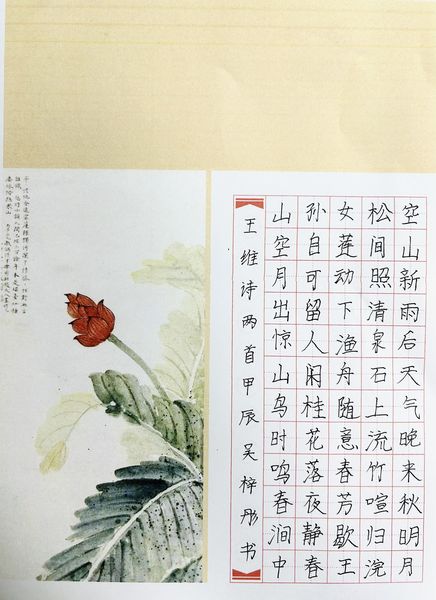 空山新雨后天气晚来秋明月
松间照清泉石上流竹喧归浣
女莲动下渔舟随意春芳歇王
孙自可留人闲桂花落夜静春
山空月出惊山鸟时鸣春涧中
王维诗两首甲辰吴梓彤书